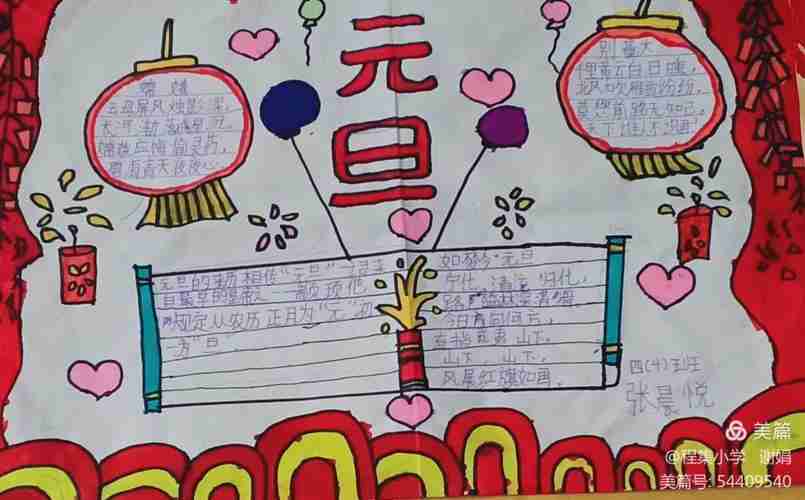 元
旦
嫦娥
云母屏风烛影深，
长河渐落晓星沉。
嫦娥应悔偷灵药，
碧海青天夜夜心。
别董大
里黄云白日曛，
北风吹雁雪纷纷。
莫愁前路无知己，
天下谁人不识君
元旦的生历相传“元旦”一词
自最早的皇帝——颛顼他
规定从农历正月为“元”初
为“旦”
如梦令·元旦
宁化、清流、归化，
路隘林深苔滑。
今日向何方，
直指武夷山下。
山下，山下，
风展红旗如画。
四(十)班
张晨悦
美篇
@程集小学 谢娟
美篇号: 54409540